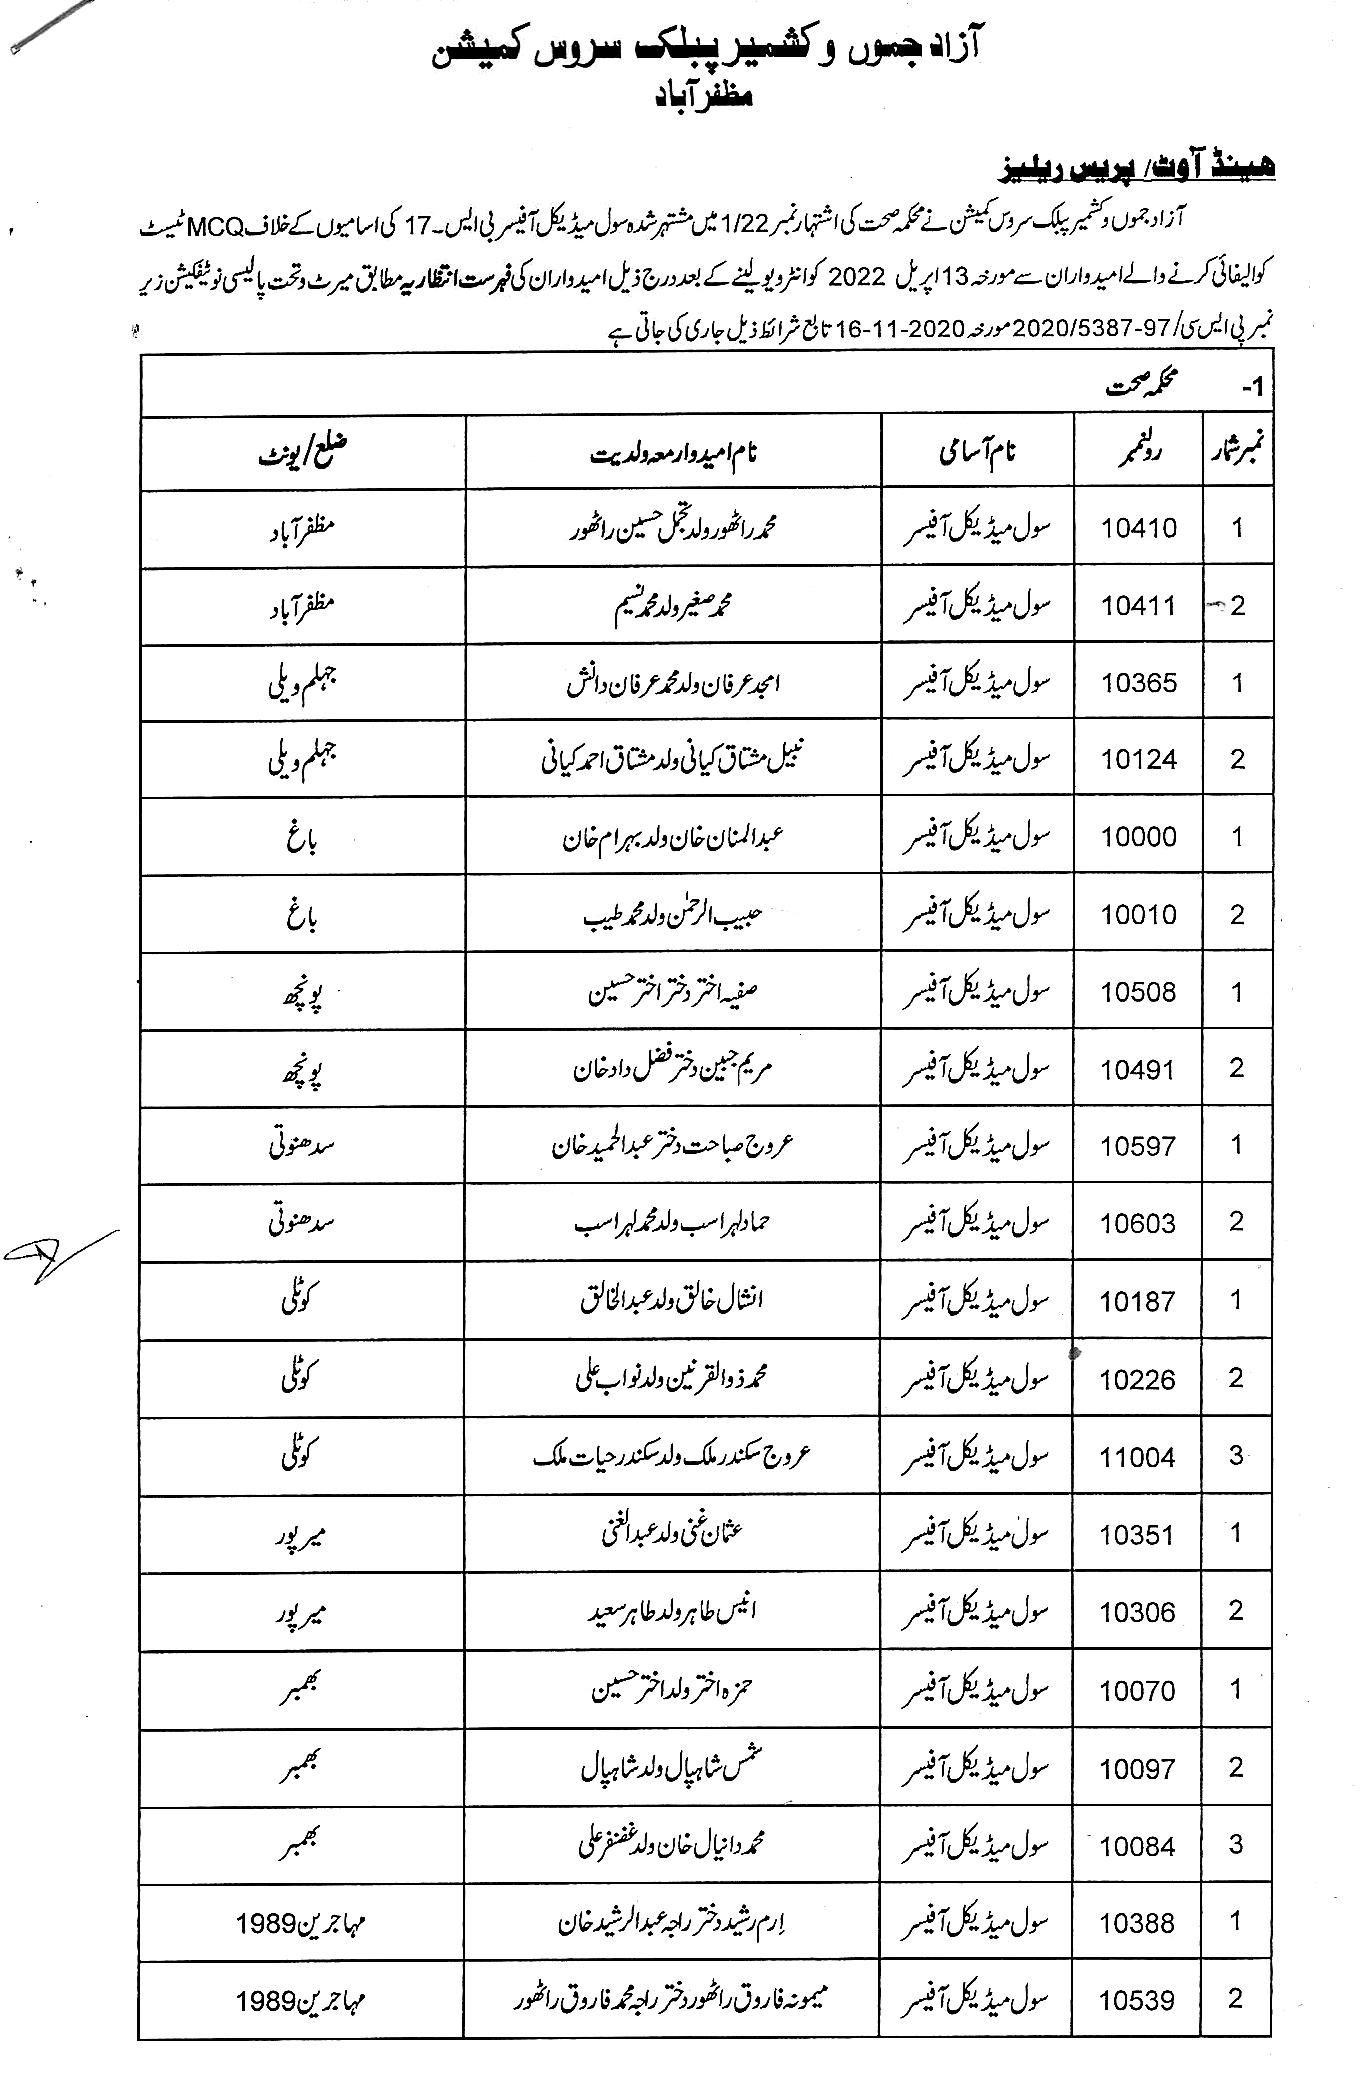 آزاد جموں و کشمیر پبلک سروس کمیشن
مظفرآباد
ھینڈ آوٹ/ پریس ریلیز
آزاد جموں و کشمیر پبلک سروس کمیشن نے محکمہ صحت کی اشتہار نمبر 1/22 میں مشتہر شدہ سول میڈیکل آفیسر بی ایس۔17 کی اسامیوں کے خلاف MCQ ٹیسٹ
کوالیفائی کرنے والے امیدواران سے مورخہ 13 اپریل 2022 کو انٹرویو لینے کے بعد درج ذیل امیدواران کی فہرست انتظاریہ مطابق میرٹ و تحت پالیسی نوٹیفکیشن زیر
نمبر پی ایس سی/2020/5387-97 مورخہ 16-11-2020 تابع شرائط ذیل جاری کی جاتی ہے
1- محکمہ صحت
نمبر شمار رولنمبر نام آسامی نام امیدوار معہ ولدیت ضلع/یونٹ
1 10410 سول میڈیکل آفیسر محمد راٹھور ولد تجمل حسین راٹھور مظفرآباد
2 10411 سول میڈیکل آفیسر محمد صغیر ولد محمد نسیم مظفرآباد
1 10365 سول میڈیکل آفیسر امجد عرفان ولد محمد عرفان دانش جہلم ویلی
2 10124 سول میڈیکل آفیسر نبیل مشتاق کیانی ولد مشتاق احمد کیانی جہلم ویلی
1 10000 سول میڈیکل آفیسر عبدالمنان خان ولد بہرام خان باغ
2 10010 سول میڈیکل آفیسر حبیب الرحمٰن ولد محمد طیب باغ
1 10508 سول میڈیکل آفیسر صفیہ اختر دختر اختر حسین پونچھ
2 10491 سول میڈیکل آفیسر مریم جبین دختر فضل داد خان پونچھ
1 10597 سول میڈیکل آفیسر عروج صباحت دختر عبدالحمید خان سدھنوتی
2 10603 سول میڈیکل آفیسر حماد لہراسب ولد محمد لہراسب سدھنوتی
1 10187 سول میڈیکل آفیسر انشال خالق ولد عبدالخالق کوٹلی
2 10226 سول میڈیکل آفیسر محمد ذوالقرنین ولد نواب علی کوٹلی
3 11004 سول میڈیکل آفیسر عروج سکندر ملک ولد سکندر حیات ملک کوٹلی
1 10351 سول میڈیکل آفیسر عثمان غنی ولد عبدالغنی میرپور
2 10306 سول میڈیکل آفیسر انیس طاہر ولد طاہر سعید میرپور
1 10070 سول میڈیکل آفیسر حمزہ اختر ولد اختر حسین بھمبر
2 10097 سول میڈیکل آفیسر شمس شاہپال ولد شاہپال بھمبر
3 10084 سول میڈیکل آفیسر محمد دانیال خان ولد غضنفر علی بھمبر
1 10388 سول میڈیکل آفیسر اِرم رشید دختر راجہ عبدالرشید خان مہاجرین 1989
2 10539 سول میڈیکل آفیسر میمونہ فاروق راٹھور دختر راجہ محمد فاروق راٹھور مہاجرین 1989